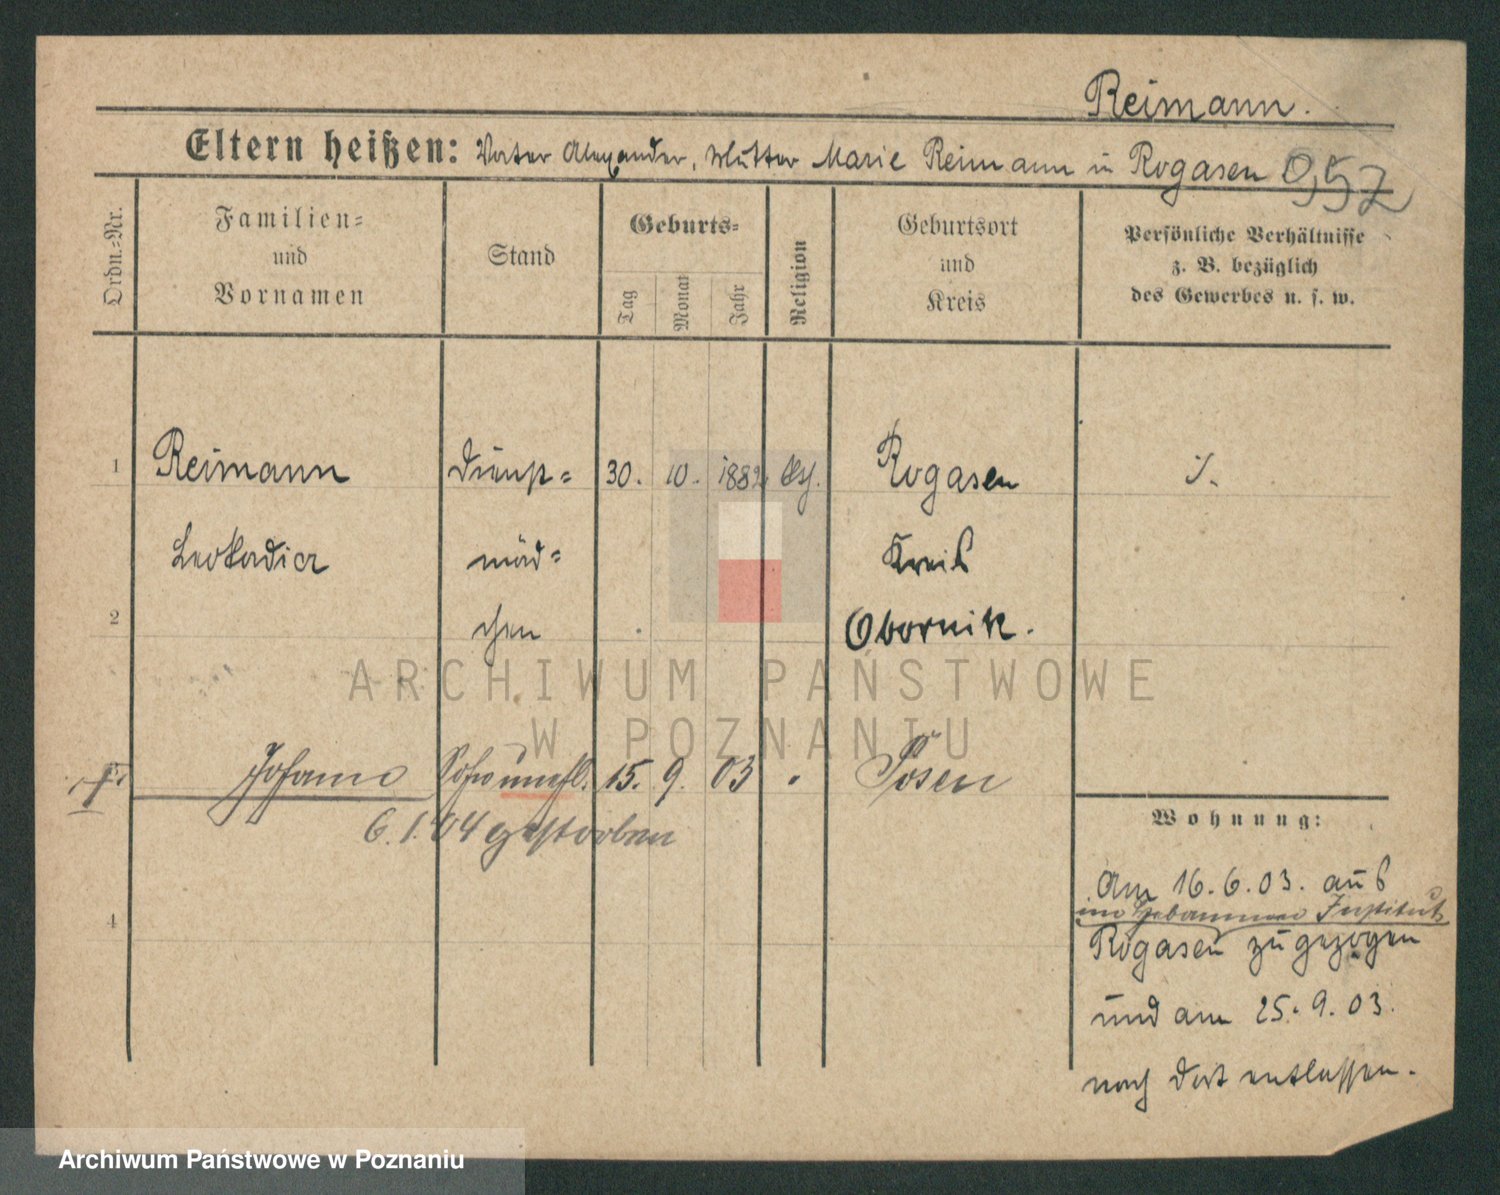 Reimann.
Eltern heißen: Vater Alexander, Mutter Marie Reimann in Rogasen 0,57
Ordn.=Nr.
Familien=
und
Vornamen
Stand
Geburts=
Tag
Monat
Jahr
Religion
Geburtsort
und
Kreis
Persönliche Verhältnisse
z. B. bezüglich
des Gewerbes u. s. w.
1 Reimann Dienst= 30. 10. 1882 Rogasen
Leokadia mäd= Kreis
2 chen Obornik.
ARCHIWUM PAŃSTWOWE
W POZNANIU
Johann Sohn unehl. 15. 9. 03 " Posen
6.1.04 gestorben
Wohnung:
Am 16.6.03. aus
im Hebammen Institut
4
Rogasen zugezogen
und am 25.9.03.
nach dort entlassen.
Archiwum Państwowe w Poznaniu